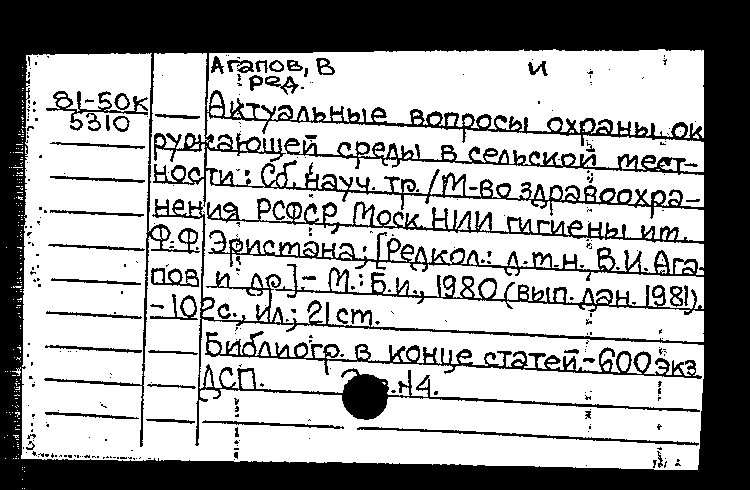 Агапов, В И
ред.
81-50к
5310
Актуальные вопросы охраны ок
ружающей среды в сельской мест-
ности: Сб. науч. тр. / М-во здравоохра-
нения РСФСР, Моск. НИИ гигиены им.
Ф.Ф. Эрисмана; [Редкол.: д.м.н. В.И. Ага-
пов и др.] - М.: Б.и., 1980 (вып. дан. 1981).
-102с., ил.; 21 см.
Библиогр. в конце статей.-600 экз
ДСП. Н4.